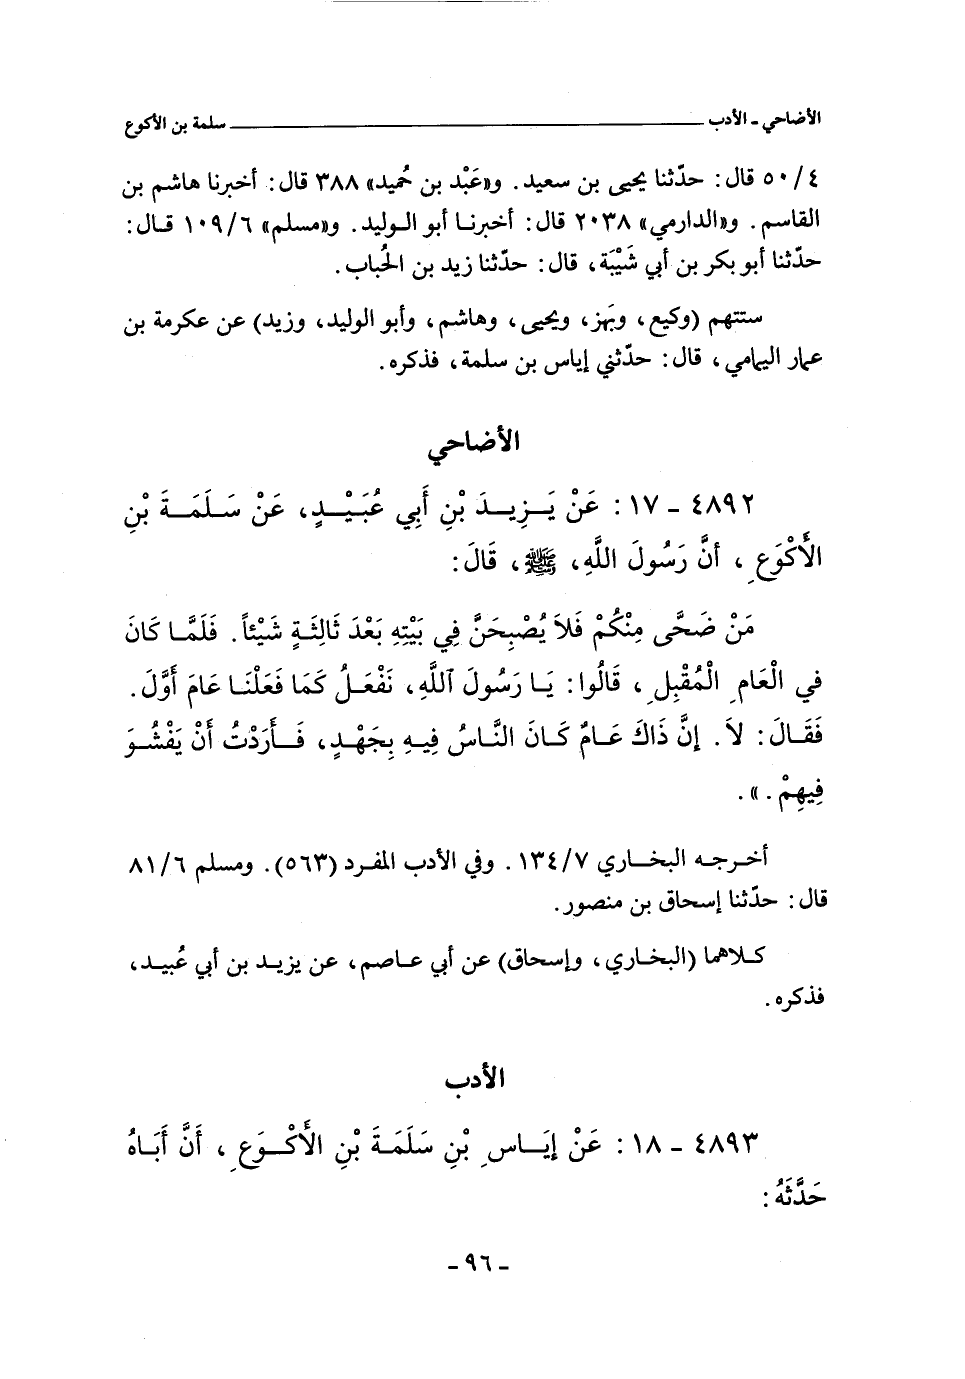 الأضاحي - الأدب ــــــــــ سلمة بن الأكوع
٥٠/٤ قال: حدّثنا يحيى بن سعيد. و«عَبْد بن حُميد» ٣٨٨ قال: أخبرنا هاشم بن
القاسم. و«الدارمي» ٢٠٣٨ قال: أخبرنا أبو الوليد. و«مسلم» ١٠٩/٦ قال:
حدّثنا أبو بكر بن أبي شَيْبَة، قال: حدّثنا زيد بن الحُباب.
ستتهم (وكيع، وبَهز، ويحيى، وهاشم، وأبو الوليد، وزيد) عن عكرمة بن
عمار اليمامي، قال: حدّثني إياس بن سلمة، فذكره.
الأضاحي
٤٨٩٢ - ١٧: عَنْ يَزِيدَ بْنِ أَبِي عُبَيْدٍ، عَنْ سَلَمَةَ بْنِ
الأَكْوَعِ، أَنَّ رَسُولَ اللَّهِ، ﷺ، قَالَ:
مَنْ ضَحَّى مِنْكُمْ فَلاَ يُصْبِحَنَّ فِي بَيْتِهِ بَعْدَ ثَالِثَةٍ شَيْئاً. فَلَمَّا كَانَ
في الْعَامِ الْمُقْبِلِ، قَالُوا: يَا رَسُولَ ٱللَّهِ، نَفْعَلُ كَمَا فَعَلْنَا عَامَ أَوَّلَ.
فَقَالَ: لاَ. إِنَّ ذَاكَ عَامٌ كَانَ النَّاسُ فِيهِ بِجَهْدٍ، فَأَرَدْتُ أَنْ يَفْشُوَ
فِيهِمْ.».
أخرجه البخاري ١٣٤/٧. وفي الأدب المفرد (٥٦٣). ومسلم ٨١/٦
قال: حدّثنا إسحاق بن منصور.
كلاهما (البخاري، وإسحاق) عن أبي عاصم، عن يزيد بن أبي عُبيد،
فذكره.
الأدب
٤٨٩٣ - ١٨: عَنْ إِيَاسِ بْنِ سَلَمَةَ بْنِ الأَكْوَعِ، أَنَّ أَبَاهُ
حَدَّثَهُ:
- ٩٦ -